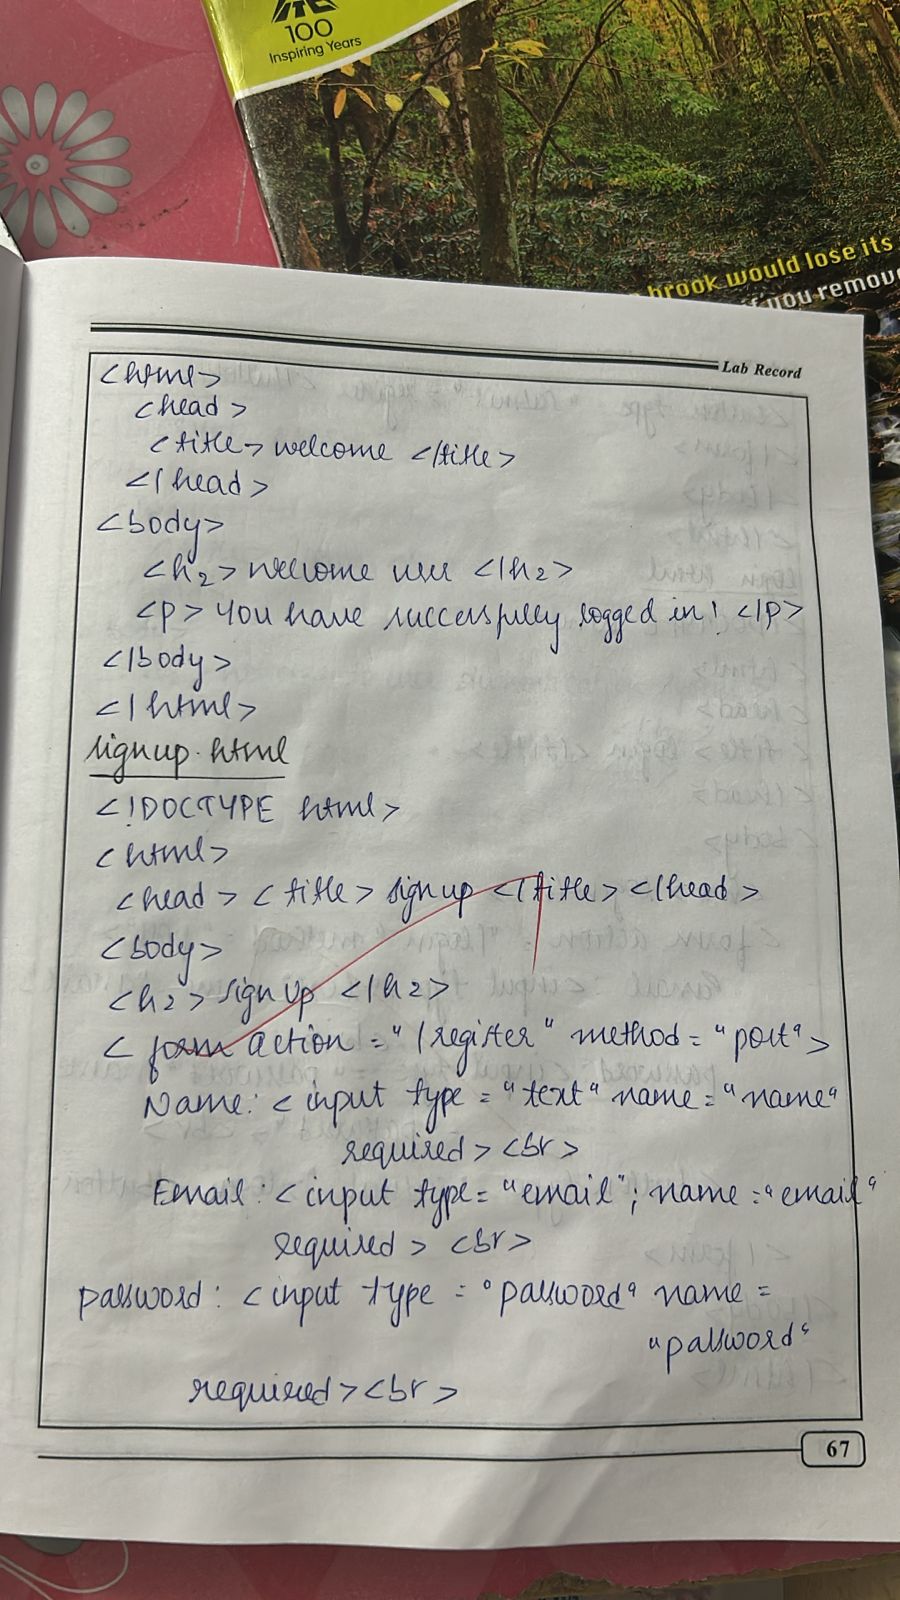 ITC
100
Inspiring Years
brook would lose its
if you remove
Lab Record
<html>
<head>
<title> welcome </title>
</head>
<body>
<h2> welcome user </h2>
<p> you have successfully logged in! </p>
</body>
</html>
signup.html
<!DOCTYPE html>
<html>
<head> <title> sign up </title> </head>
<body>
<h2> sign up </h2>
< form action = "/register" method = "post">
Name: < input type = "text" name = "name"
required> <br>
Email: < input type = "email"; name = "email"
required > <br>
password: < input type = "password" name =
"password"
required> <br>
67